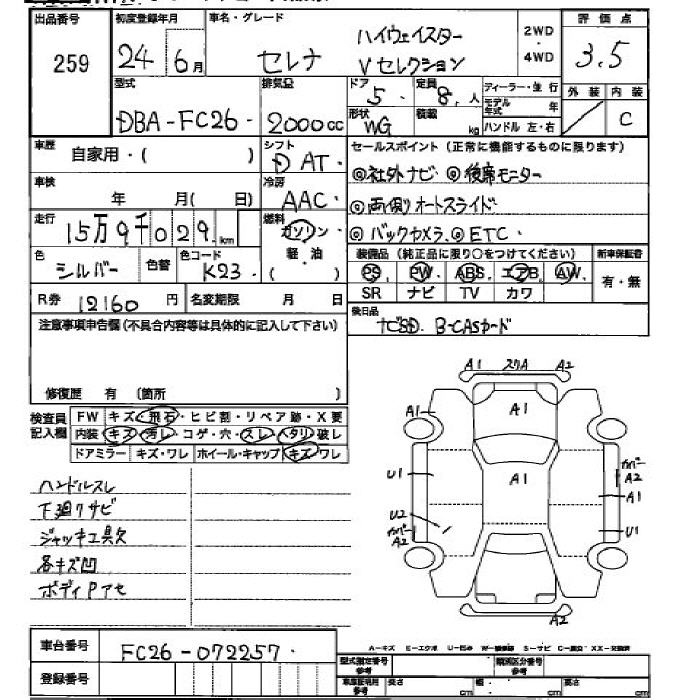 出品番号 初度登録年月 車名・グレード 2WD・4WD 評価点
259 24年6月 セレナ ハイウェイスター Vセレクション 3.5
外装 内装 C
型式 排気量 ドア 定員 ディーラー・並行
DBA-FC26 2000cc 5 8人 モデル年式 年
形状 WG 積載 kg ハンドル 左・右
車歴 自家用・( ) シフト DAT セールスポイント(正常に機能するものに限ります)
◎社外ナビ ◎後席モニター
車検 年 月( 日) 冷房 AAC
◎両側オートスライド
走行 15万9千029km 燃料 ガソリン・軽・油 ( )
◎バックカメラ ◎ETC
色 シルバー 色替 色コード K23
装備品(純正品に限り○をつけてください) 新車保証書
PS PW ABS エアB AW 有・無
SR ナビ TV カワ
R券 12160円 名変期限 月 日
後日品
ナビSD. B-CASカード
注意事項申告欄(不具合内容等は具体的に記入して下さい)
修復歴 有 〔箇所 〕
検査員記入欄
FW キズ・飛石・ヒビ割・リペア跡・X要
内装 キズ・汚レ・コゲ・穴・スレ・ヘタリ・破レ
ドアミラー キズ・ワレ ホイール・キャップ キズ・ワレ
ハンドルスレ
下廻りサビ
ジャッキ工具欠
各キズ凹
ボディPアセ
A1 スクA A2
A1 A1
U1 A1 カバーA2
A1
U2 カバーA2 U1
車台番号 FC26-072257
登録番号
A-キズ E-エクボ U-凹み S-サビ
型式指定番号 類別区分番号
参考 長さ cm 幅 cm 高さ cm